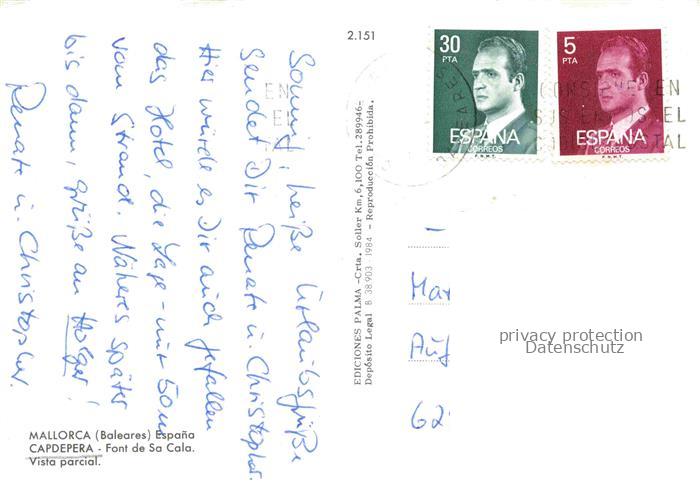 Sonnige, heiße Urlaubsgrüße
sendet Dir Renate u. Christopher.
Hier würde es Dir auch gefallen
das Hotel, die Lage - nur 50m
vom Strand. Näheres später
bis dann, Grüße an Holger!
Renate u. Christopher.
MALLORCA (Baleares) España
CAPDEPERA - Font de Sa Cala.
Vista parcial.
2.151
EDICIONES PALMA -Crta. Soller Km, 6,100 Tel. 289946-
Depósito Legal B 38.903 - 1984 - Reproducción Prohibida.
30
PTA
ESPAÑA
CORREOS
F.N.M.T.
5
PTA
ESPAÑA
CORREOS
F.N.M.T.
EN
EL
EN
EL
TAL
Mar
Auf
62
privacy protection
Datenschutz